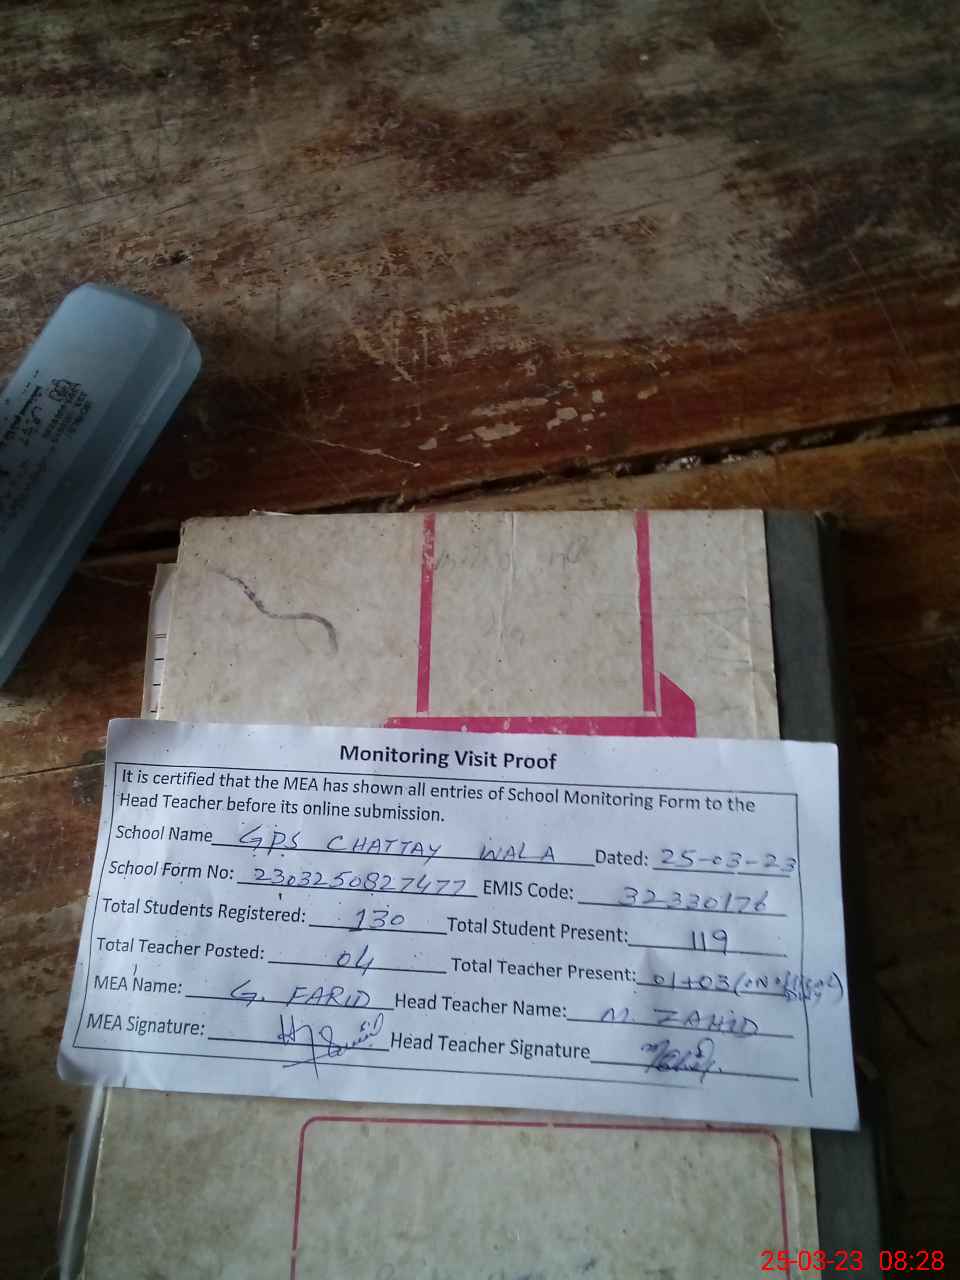 Monitoring Visit Proof
It is certified that the MEA has shown all entries of School Monitoring Form to the
Head Teacher before its online submission.
School Name GPS CHATTAY WALA Dated: 25-03-23
School Form No: 2303250827477 EMIS Code: 32330176
Total Students Registered: 130 Total Student Present: 119
Total Teacher Posted: 04 Total Teacher Present: 01+03 (ON Official Duty)
MEA Name: G. FARID Head Teacher Name: M. ZAHID
MEA Signature: Head Teacher Signature
25-03-23 08:28